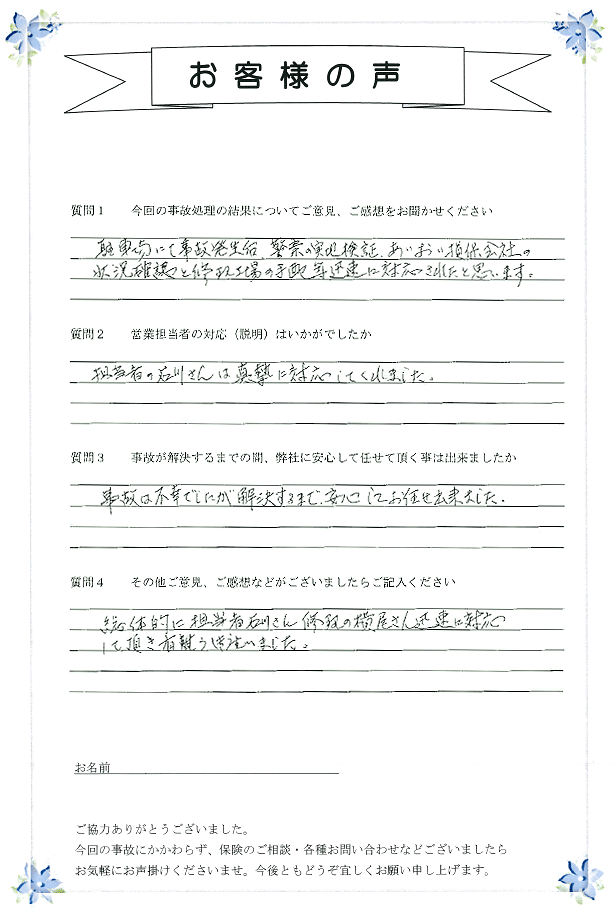 お客様の声
質問1 今回の事故処理の結果についてご意見、ご感想をお聞かせください
駐車場にて事故発生后、警察の実況検証、あいおい損保会社の
状況確認と修理工場の手配等迅速に対応されたと思います。
質問2 営業担当者の対応（説明）はいかがでしたか
担当者の石川さんは真摯に対応してくれました。
質問3 事故が解決するまでの間、弊社に安心して任せて頂く事は出来ましたか
事故は不幸でしたが解決するまで、安心してお任せ出来ました。
質問4 その他ご意見、ご感想などがございましたらご記入ください
総体的に担当者石川さん修理の横尾さん迅速に対応
して頂き有難うございました。
お名前
ご協力ありがとうございました。
今回の事故にかかわらず、保険のご相談・各種お問い合わせなどございましたら
お気軽にお声掛けくださいませ。今後ともどうぞ宜しくお願い申し上げます。